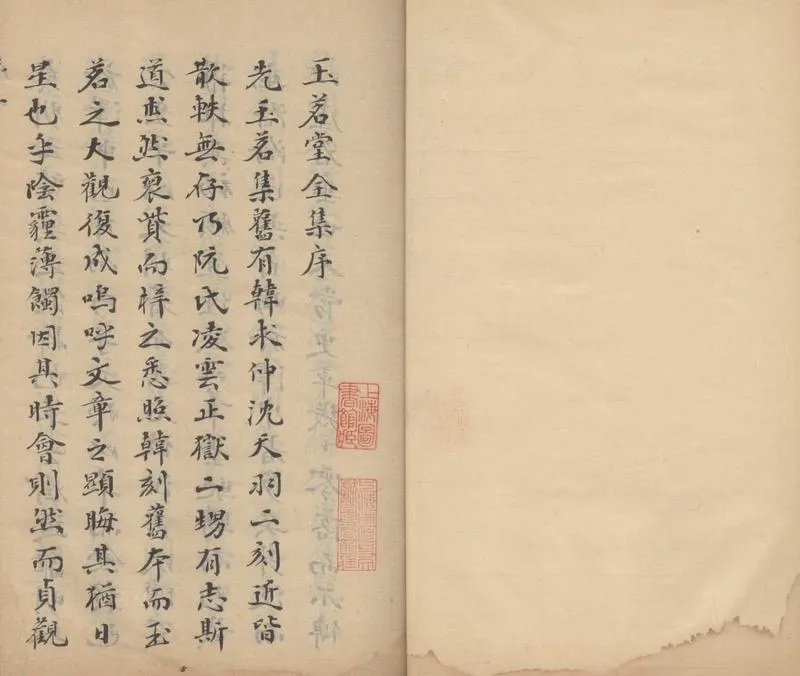 玉茗堂全集序
先玉茗集舊有韓求仲沈天羽二刻近皆
散軼無存乃阮氏凌雲正嶽二甥有志斯
道悊然裒貲而梓之悉照韓刻舊本而玉
茗之大觀復成嗚呼文章之顯晦其猶日
星也乎陰霾薄蝕因其時會則然而貞觀
上海圖書館藏